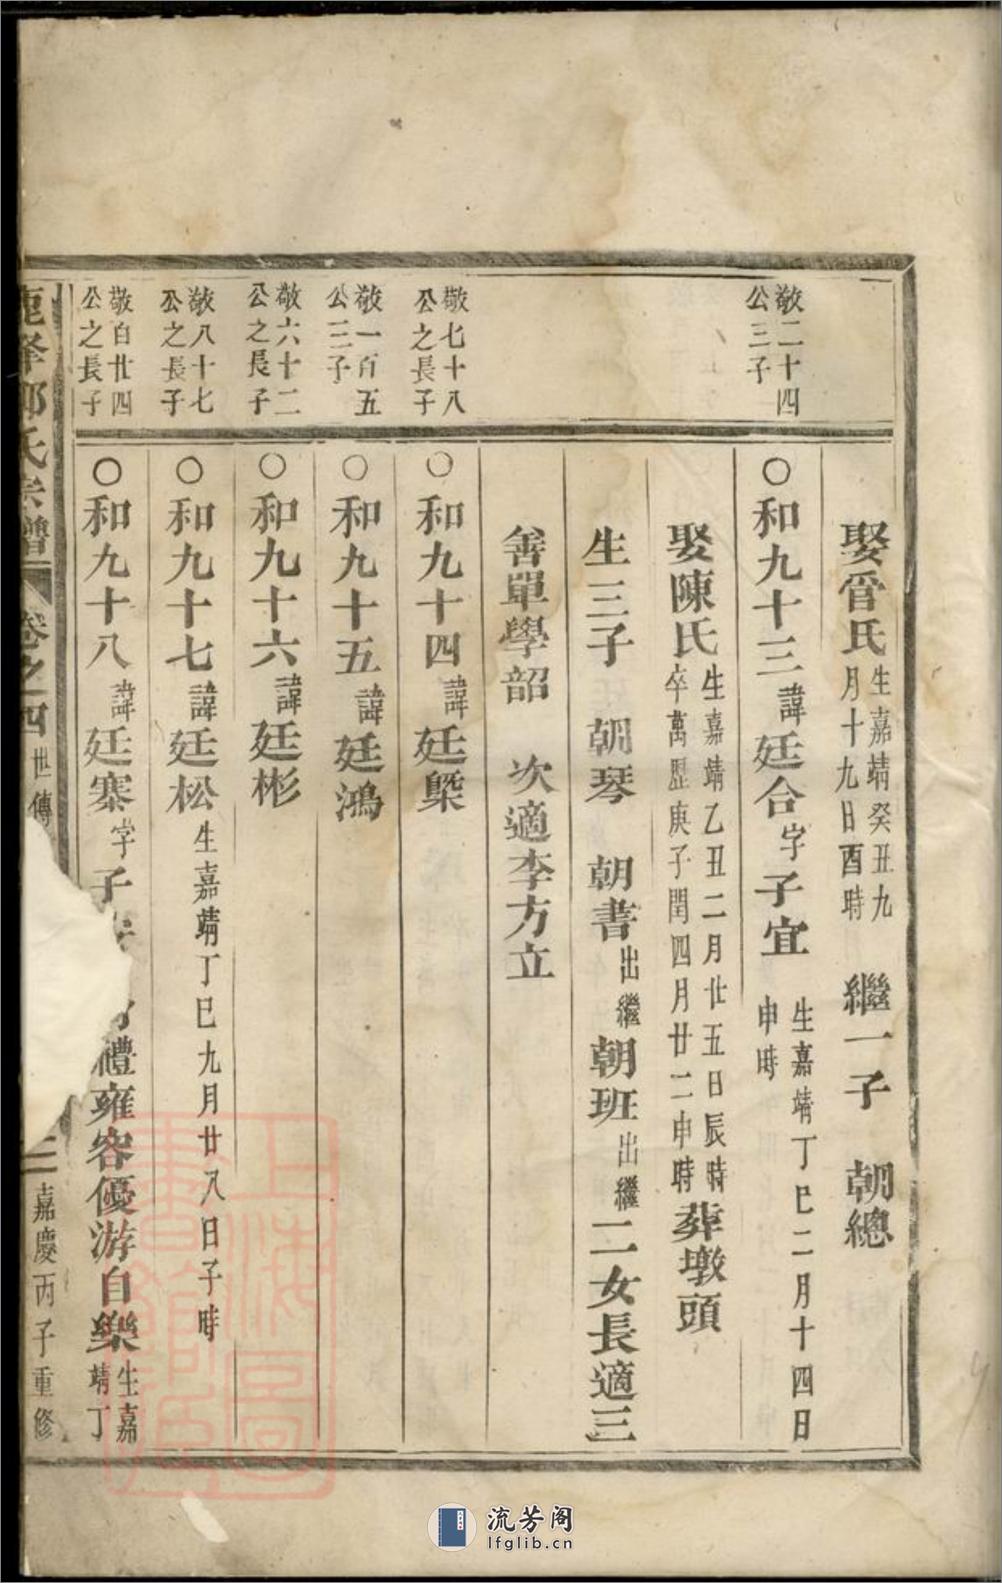 娶管氏生嘉靖癸丑九月十九日酉時 繼一子 朝總
敬二十四公三子
○和九十三諱廷合字子宜 生嘉靖丁巳二月十四日申時
娶陳氏生嘉靖乙丑二月廿五日辰時卒萬歷庚子閏四月廿二申時葬墩頭
生三子 朝琴 朝書出繼朝班出繼二女長適三
善單學韶 次適李方立
敬七十八公之長子
○和九十四諱廷槩
敬一百五公三子
○和九十五諱廷鴻
敬六十二公之長子
○和九十六諱廷彬
敬八十七公之長子
○和九十七諱廷松生嘉靖丁巳九月廿八日子時
敬百廿四公之長子
○和九十八諱廷寨字子 禮雍容優游自樂生嘉靖丁
氏宗譜 卷之四 世傳 嘉慶丙子重修
上海圖書館藏
流芳阁
lfglib.cn